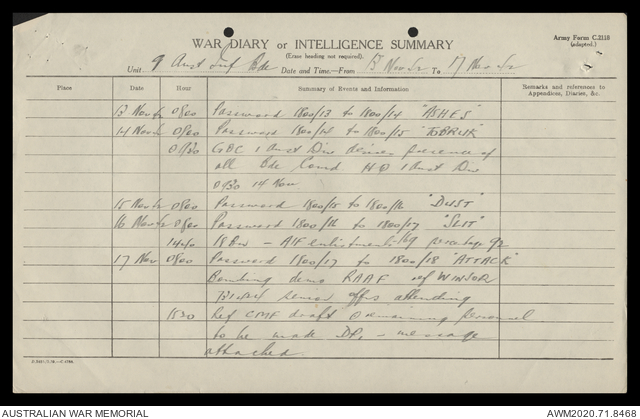 Army Form C.2118
(adapted.)
WAR DIARY or INTELLIGENCE SUMMARY
(Erase heading not required).
Unit 9 Aust Inf Bde Date and Time—From 13 Nov 42 To 17 Nov 42
Place Date Hour Summary of Events and Information Remarks and references to Appendices, Diaries, &c.
13 Nov 42 0800 Password 1800/13 to 1800/14 "ASHES"
14 Nov 42 0800 Password 1800/14 to 1800/15 "TOBRUK"
0930 GOC 1 Aust Div desires presence of
all Bde Comd HQ 1 Aust Div
0930 14 Nov
15 Nov 42 0800 Password 1800/15 to 1800/16 "DUST"
16 Nov 42 0800 Password 1800/16 to 1800/17 "SLIT"
1440 18 Bn — AIF enlistments percentage 92
17 Nov 0800 Password 1800/17 to 1800/18 "ATTACK"
Bombing demo RAAF ref WINDSOR
senior offrs attending
1530 Ref CMF draft remaining personnel
to be made DP, — message
attached.
AUSTRALIAN WAR MEMORIAL
AWM2020.71.8468